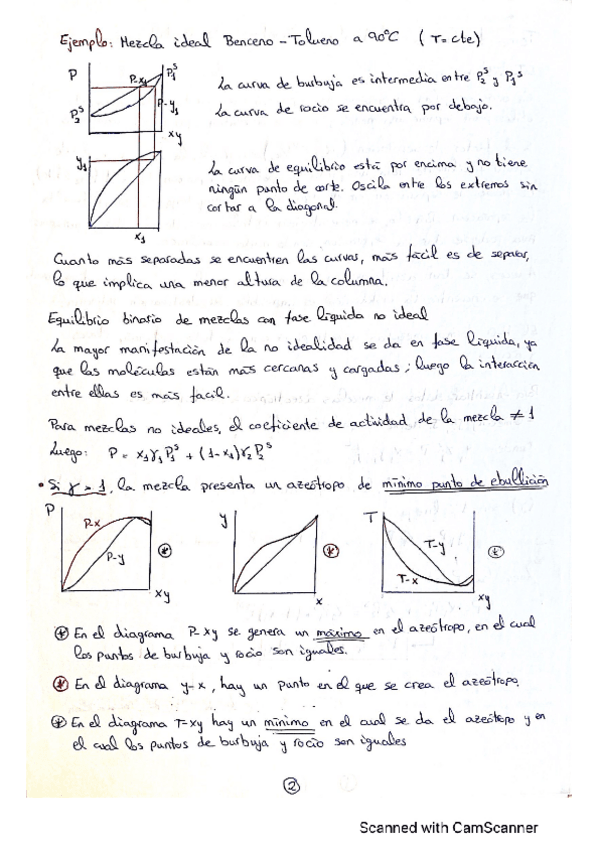 Ejemplo: Mezcla ideal Benceno - Tolueno a 90°C (T=cte)
P
P-x₁
P₁ˢ
P₂ˢ
P-y₁
xy
La curva de burbuja es intermedia entre P₂ˢ y P₁ˢ
La curva de rocío se encuentra por debajo.
y₁
x₁
La curva de equilibrio está por encima y no tiene
ningún punto de corte. Oscila entre los extremos sin
cortar a la diagonal.
Cuanto más separadas se encuentren las curvas, más fácil es de separar,
lo que implica una menor altura de la columna.
Equilibrio binario de mezclas con fase líquida no ideal
La mayor manifestación de la no idealidad se da en fase líquida, ya
que las moléculas están más cercanas y cargadas; luego la interacción
entre ellas es más facil.
Para mezclas no ideales, el coeficiente de actividad de la mezcla ≠ 1
Luego: P = x₁γ₁P₁ˢ + (1-x₁)γ₂P₂ˢ
• Si γ > 1, la mezcla presenta un azeótropo de mínimo punto de ebullición
P
P-x
P-y
xy
y
x
T
T-y
T-x
xy
⊛ En el diagrama P-xy se genera un máximo en el azeótropo, en el cual
los puntos de burbuja y rocío son iguales.
⊛ En el diagrama y-x, hay un punto en el que se crea el azeótropo.
⊛ En el diagrama T-xy hay un mínimo en el cual se da el azeótopo y en
el cual los puntos de burbuja y rocío son iguales
2
Scanned with CamScanner